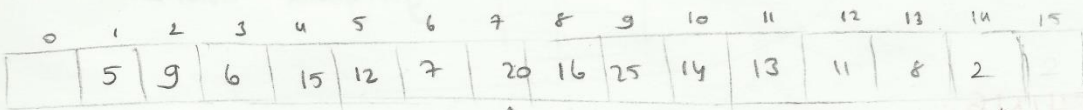 0 1 2 3 4 5 6 7 8 9 10 11 12 13 14 15
5 9 6 15 12 7 20 16 25 14 13 11 8 2